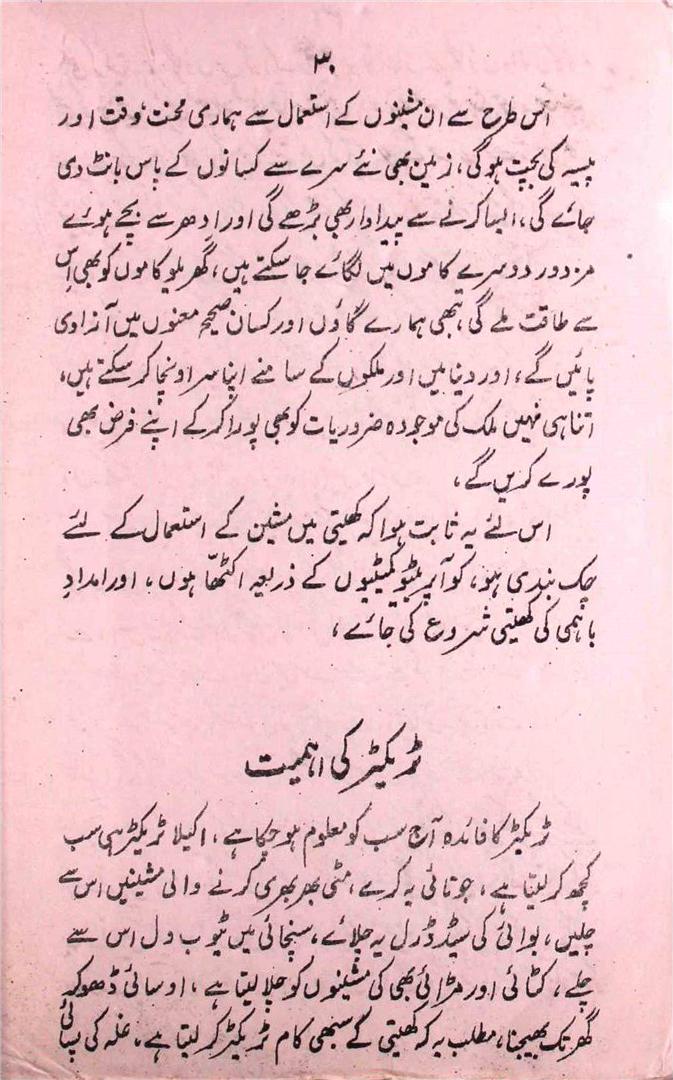 ۳۰
اس طرح سے ان مشینوں کے استعمال سے ہماری محنت وقت اور
پیسہ کی بچت ہوگی، زمین بھی نئے سرے سے کسانوں کے پاس بانٹ دی
جائے گی، ایسا کرنے سے پیداوار بھی بڑھے گی اور اِدھر سے بچے ہوئے
مزدور دوسرے کاموں میں لگائے جا سکتے ہیں، گھریلو کاموں کو بھی اس
سے طاقت ملے گی، تبھی ہمارے گاؤں اور کسان صحیح معنوں میں آزادی
پائیں گے، اور دنیا میں اور ملکوں کے سامنے اپنا سر اونچا کر سکتے ہیں،
اتنا ہی نہیں ملک کی موجودہ ضروریات کو بھی پورا کر کے اپنے فرض بھی
پورے کریں گے،
اس لئے یہ ثابت ہوا کہ کھیتی میں مشین کے استعمال کے لئے
چک بندی ہو، کوآپریٹو کمیٹیوں کے ذریعہ اکٹھّا ہوں، اور امدادِ
باہمی کی کھیتی شروع کی جائے،
ٹریکٹر کی اہمیت
ٹریکٹر کا فائدہ آج سب کو معلوم ہو چکا ہے، اکیلا ٹریکٹر ہی سب
کچھ کر لیتا ہے، جوتائی یہ کرے، مٹی بھربھری کرنے والی مشینیں اس سے
چلیں، بوائی کی سیڈ ڈرل یہ چلائے، سنچائی میں ٹیوب ول اس سے
چلے، کٹائی اور مڑائی بھی کی مشینوں کو چلا لیتا ہے، اوسائی ڈھوکر
گھر تک بھیجنا، مطلب یہ کہ کھیتی کے سبھی کام ٹریکٹر کر لیتا ہے، غلہ کی پسائی